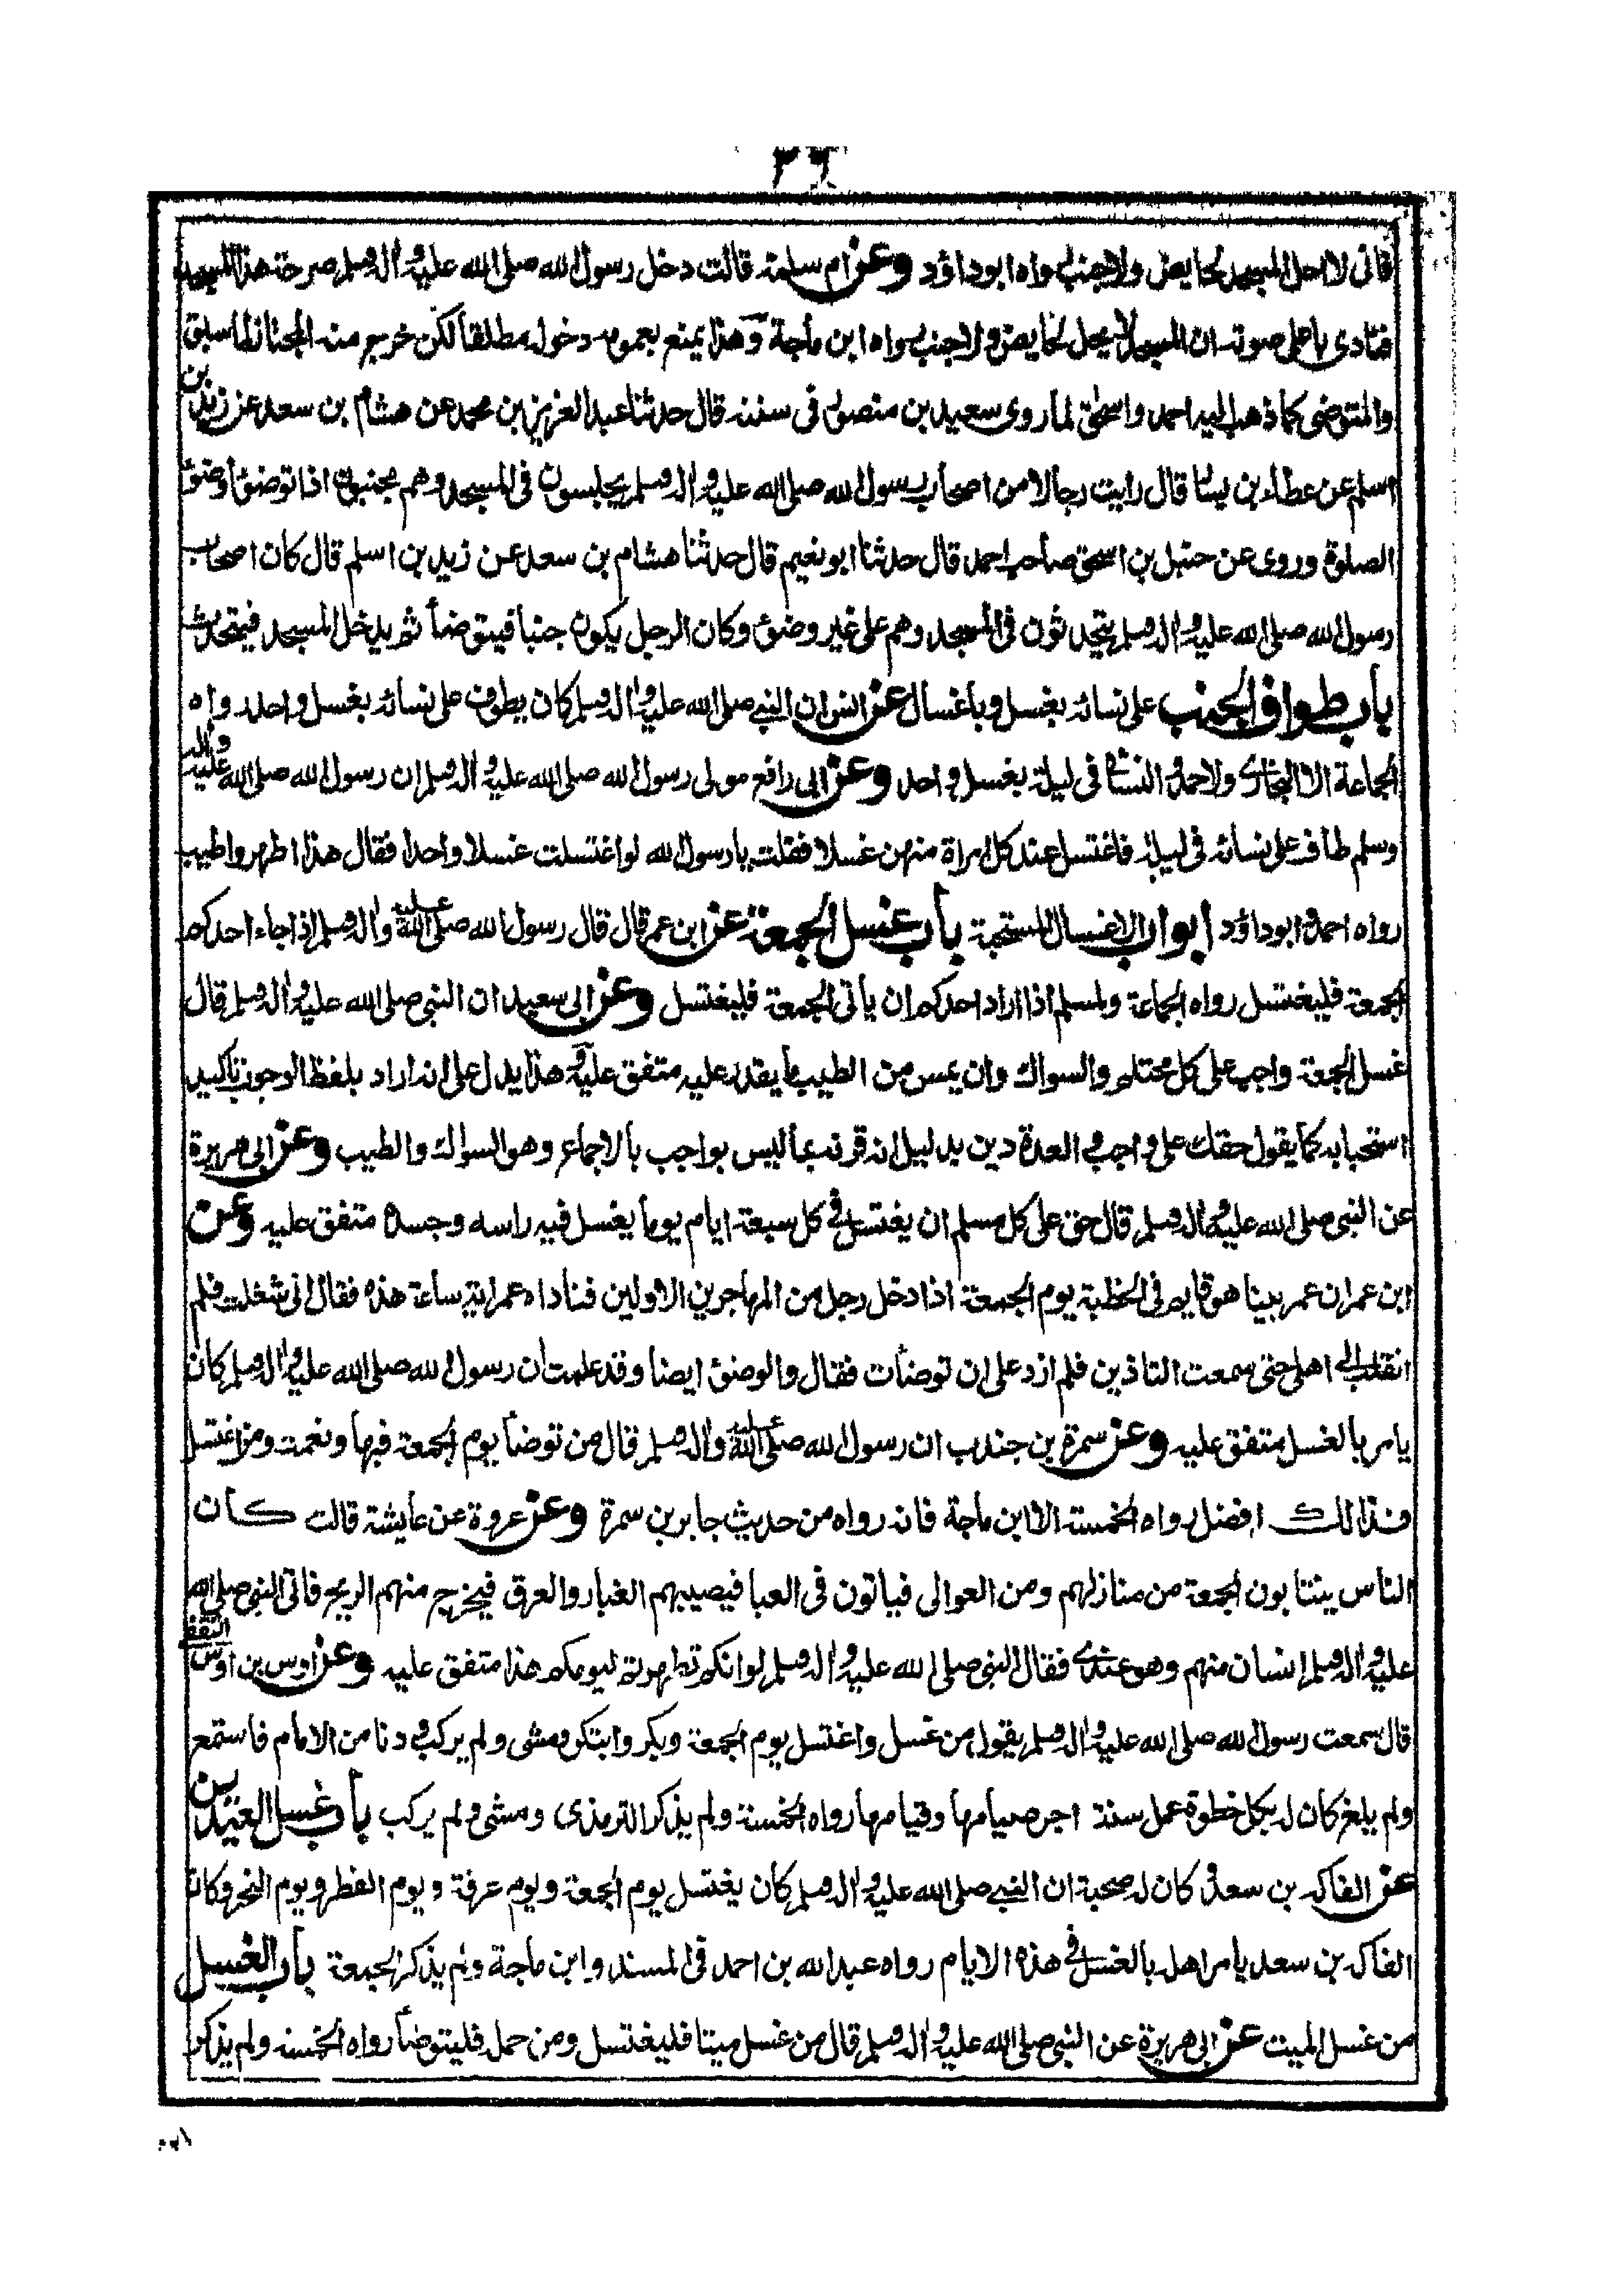 ٣٦
فانى لا احل المسجد لحايض ولا لجنب رواه ابو داؤد وعن ام سلمة قالت دخل رسول الله صلى الله عليه واله وسلم صرحة هذا المسجد
فنادى باعلى صوته ان المسجد لا يحل لحايض ولا لجنب رواه ابن ماجة وهذا يمنع بعمومه دخوله مطلقا لكن خرج منه المجتاز لما سبق
والمتوضى كما ذهب اليه احمد واسحق لما روى سعيد بن منصور فى سننه قال حدثنا عبد العزيز بن محمد عن هشام بن سعد عن زيد بن
اسلم عن عطاء بن يسار قال رايت رجالا من اصحاب رسول الله صلى الله عليه واله وسلم يجلسون فى المسجد وهم مجنبون اذا توضؤا وضوء
الصلوة وروى عن حنبل بن اسحق صاحب احمد قال حدثنا ابو نعيم قال حدثنا هشام بن سعد عن زيد بن اسلم قال كان اصحاب
رسول الله صلى الله عليه واله وسلم يتحدثون فى المسجد وهم على غير وضوء وكان الرجل يكون جنبا فيتوضأ ثم يدخل المسجد فيتحدث
باب طواف الجنب على نسائه بغسل وباغسال عن انس ان النبي صلى الله عليه واله وسلم كان يطوف على نسائه بغسل واحد رواه
الجماعة الا البخارى ولاحمد والنسائى فى ليلة بغسل واحد وعن ابى رافع مولى رسول الله صلى الله عليه واله وسلم ان رسول الله صلى الله عليه واله
وسلم طاف على نسائه فى ليلة فاغتسل عند كل امراة منهن غسلا فقلت يا رسول الله لو اغتسلت غسلا واحدا فقال هذا اطهر واطيب
رواه احمد وابو داؤد ابواب الاغسال المستحبة باب غسل الجمعة عن ابن عمر قال قال رسول الله صلى الله عليه واله وسلم اذا جاء احدكم
الجمعة فليغتسل رواه الجماعة ولمسلم اذا اراد احدكم ان يأتى الجمعة فليغتسل وعن ابى سعيد ان النبى صلى الله عليه واله وسلم قال
غسل الجمعة واجب على كل محتلم والسواك وان يمس من الطيب ما يقدر عليه متفق عليه وهذا يدل على انه اراد بلفظ الوجوب تاكيد
استحبابه كما يقول حقك على واجب والعدة دين بدليل انه قرنه بما ليس بواجب بالاجماع وهو السواك والطيب وعن ابى هريرة
عن النبى صلى الله عليه واله وسلم قال حق على كل مسلم ان يغتسل فى كل سبعة ايام يوما يغسل فيه راسه وجسده متفق عليه وعن
ابن عمر ان عمر بينا هو قايم فى الخطبة يوم الجمعة اذا دخل رجل من المهاجرين الاولين فناداه عمر اية ساعة هذه فقال انى شغلت فلم
انقلب الى اهلى حتى سمعت التاذين فلم ازد على ان توضأت فقال والوضوء ايضا وقد علمت ان رسول الله صلى الله عليه واله وسلم كان
يامر بالغسل متفق عليه وعن سمرة بن جندب ان رسول الله صلى الله عليه واله وسلم قال من توضأ يوم الجمعة فبها ونعمت ومن اغتسل
فذالك افضل رواه الخمسة الا ابن ماجة فانه رواه من حديث جابر بن سمرة وعن عروة عن عايشة قالت كان
الناس ينتابون الجمعة من منازلهم ومن العوالى فياتون فى العبا فيصيبهم الغبار والعرق فيخرج منهم الريح فاتى النبى صلى الله
عليه واله وسلم انسان منهم وهو عندى فقال النبى صلى الله عليه واله وسلم لو انكم تطهرتم ليومكم هذا متفق عليه وعن اوس بن اوس الثقفى
قال سمعت رسول الله صلى الله عليه واله وسلم يقول من غسل واغتسل يوم الجمعة وبكر وابتكر ومشى ولم يركب ودنا من الامام فاستمع
ولم يلغ كان له بكل خطوة عمل سنة اجر صيامها وقيامها رواه الخمسة ولم يذكر الترمذى ومشى ولم يركب باب غسل العيدين
عن الفاكه بن سعد وكان له صحبة ان النبي صلى الله عليه واله وسلم كان يغتسل يوم الجمعة ويوم عرفة ويوم الفطر ويوم النحر وكان
الفاكه بن سعد يامر اهله بالغسل فى هذه الايام رواه عبد الله بن احمد فى المسند وابن ماجة ولم يذكر الجمعة باب الغسل
من غسل الميت عن ابى هريرة عن النبى صلى الله عليه واله وسلم قال من غسل ميتا فليغتسل ومن حمله فليتوضأ رواه الخمسة ولم يذكر